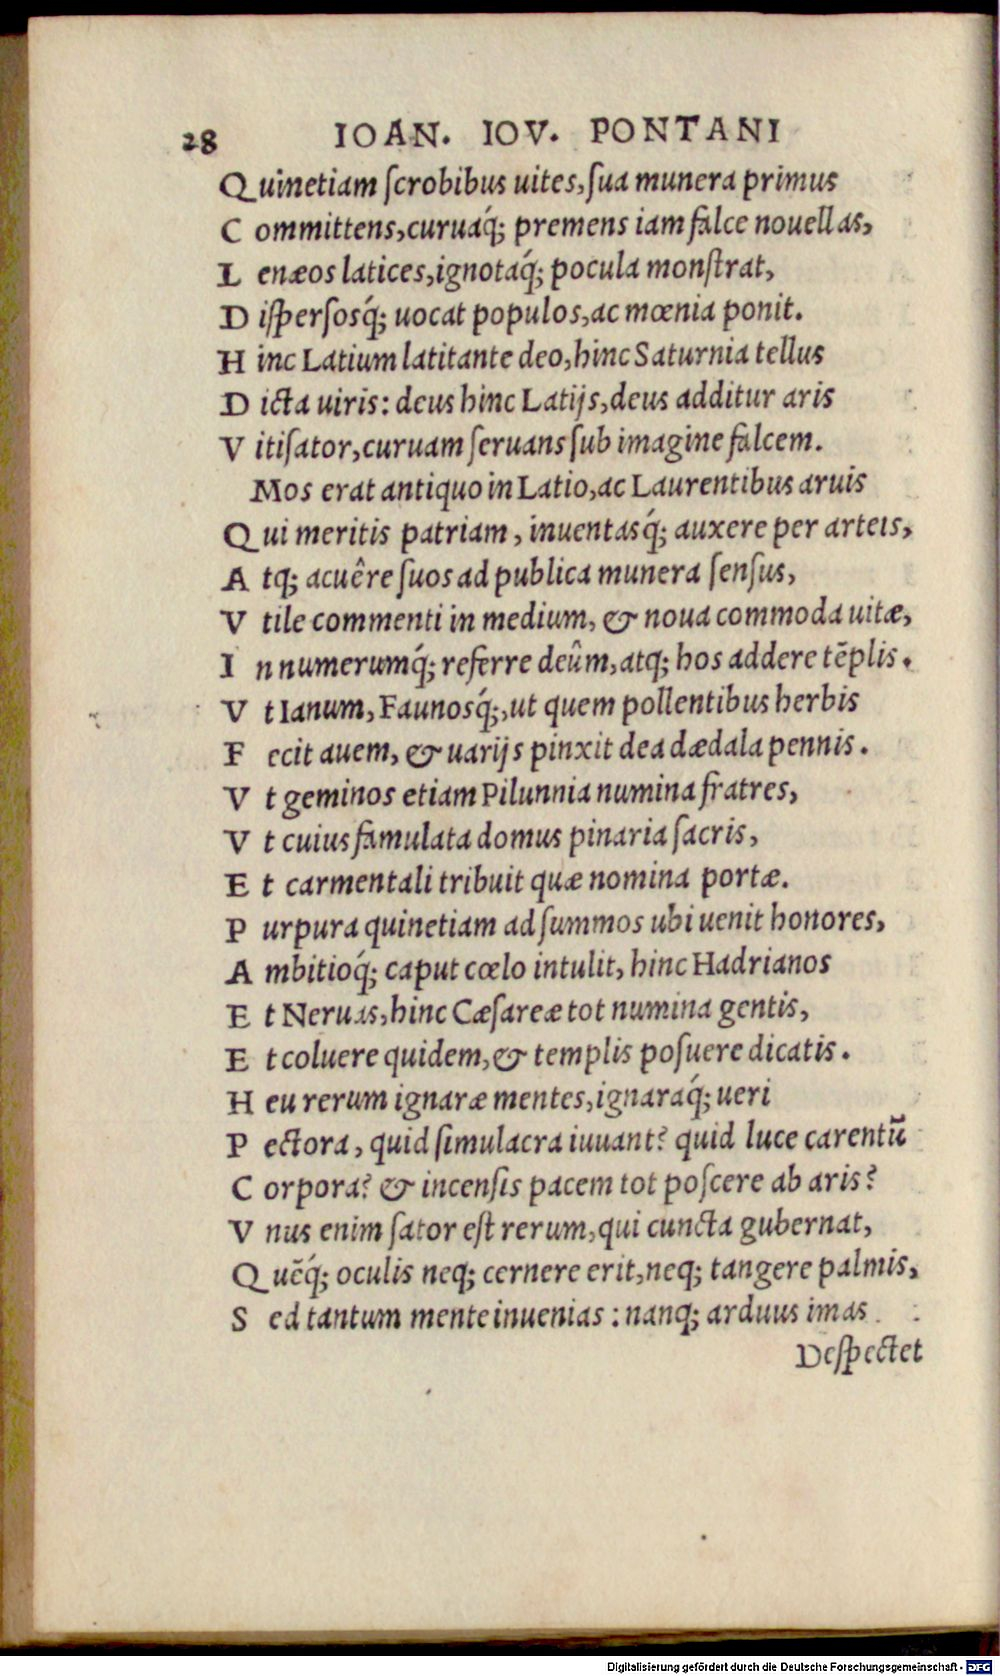 28 IOAN. IOV. PONTANI
Q uinetiam ſcrobibus uites, ſua munera primus
C ommittens, curuaq́; premens iam falce nouellas,
L enæos latices, ignotaq́; pocula monſtrat,
D iſperſosq́; uocat populos, ac mœnia ponit.
H inc Latium latitante deo, hinc Saturnia tellus
D icta uiris: deus hinc Latijs, deus additur aris
V itiſator, curuam ſeruans ſub imagine falcem.
Mos erat antiquo in Latio, ac Laurentibus aruis
Q ui meritis patriam, inuentasq́; auxere per arteis,
A tq; acuêre ſuos ad publica munera ſenſus,
V tile commenti in medium, & noua commoda uitæ,
I n numerumq́; referre deûm, atq; hos addere tẽplis.
V t Ianum, Faunosq́;, ut quem pollentibus herbis
F ecit auem, & uarijs pinxit dea dædala pennis.
V t geminos etiam Pilunnia numina fratres,
V t cuius famulata domus pinaria ſacris,
E t carmentali tribuit quæ nomina portæ.
P urpura quinetiam ad ſummos ubi uenit honores,
A mbitioq́; caput cœlo intulit, hinc Hadrianos
E t Neruas, hinc Cæſareæ tot numina gentis,
E t coluere quidem, & templis poſuere dicatis.
H eu rerum ignaræ mentes, ignaraq́; ueri
P ectora, quid ſimulacra iuuant? quid luce carentũ
C orpora? & incenſis pacem tot poſcere ab aris?
V nus enim ſator eſt rerum, qui cuncta gubernat,
Q uẽq́; oculis neq; cernere erit, neq; tangere palmis,
S ed tantum mente inuenias: nanq; arduus imas
Deſpectet
Digitalisierung gefördert durch die Deutsche Forschungsgemeinschaft - DFG